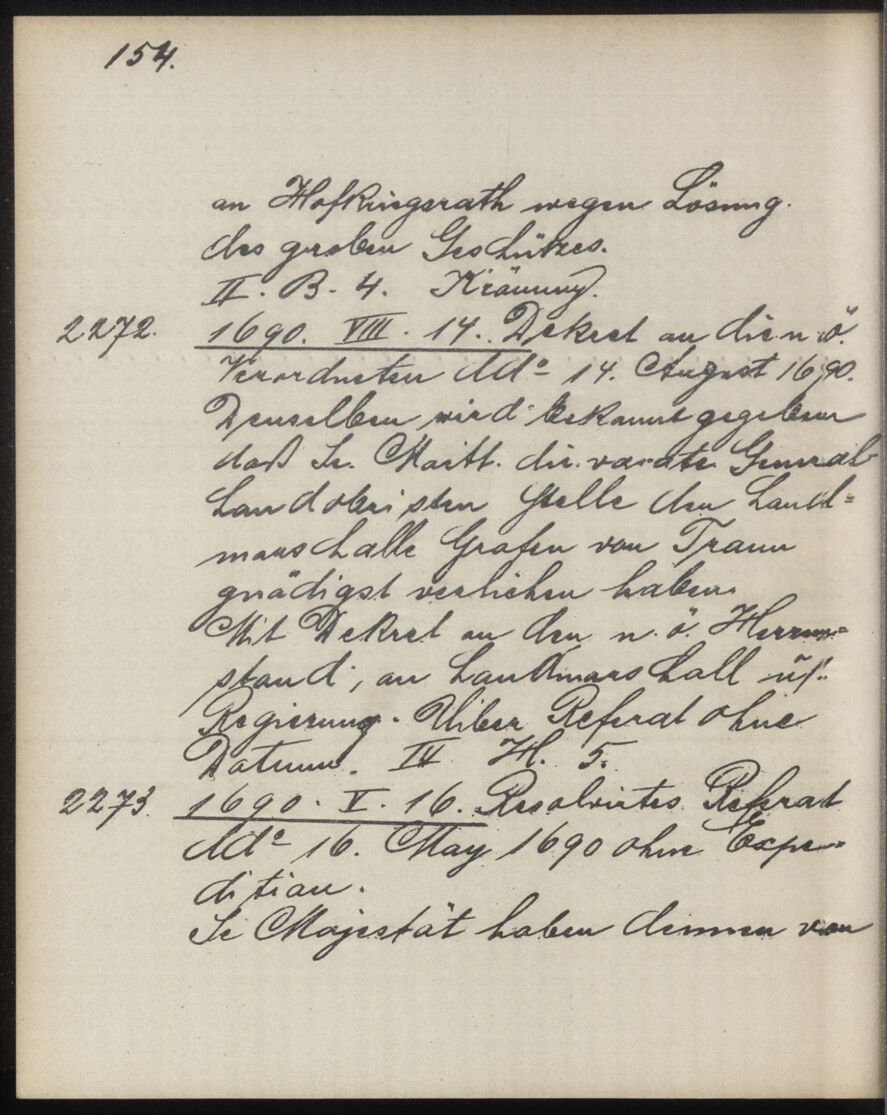 154.
an Hofkriegsrath wegen Lösung
des groben Geschützes.
II. B. 4. Krönung.
2272. 1690. VIII. 14. Dekret an die n. ö.
Verordneten ddo 14. August 1690.
Denselben wird bekannt gegeben
daß Se. Maitt. die vacate General
Landobristen Stelle den Land=
marschalle Grafen von Traun
gnädigst verliehen haben.
Mit Dekret an den n. ö. Herren=
stand, an Landmarschall u
Regierung. Uiber Referat ohne
Datum. IV. H. 5.
2273. 1690. V. 16. Resolvirtes Referat
ddo 16. May 1690 ohne Expe=
dition.
Se Majestät haben denen von